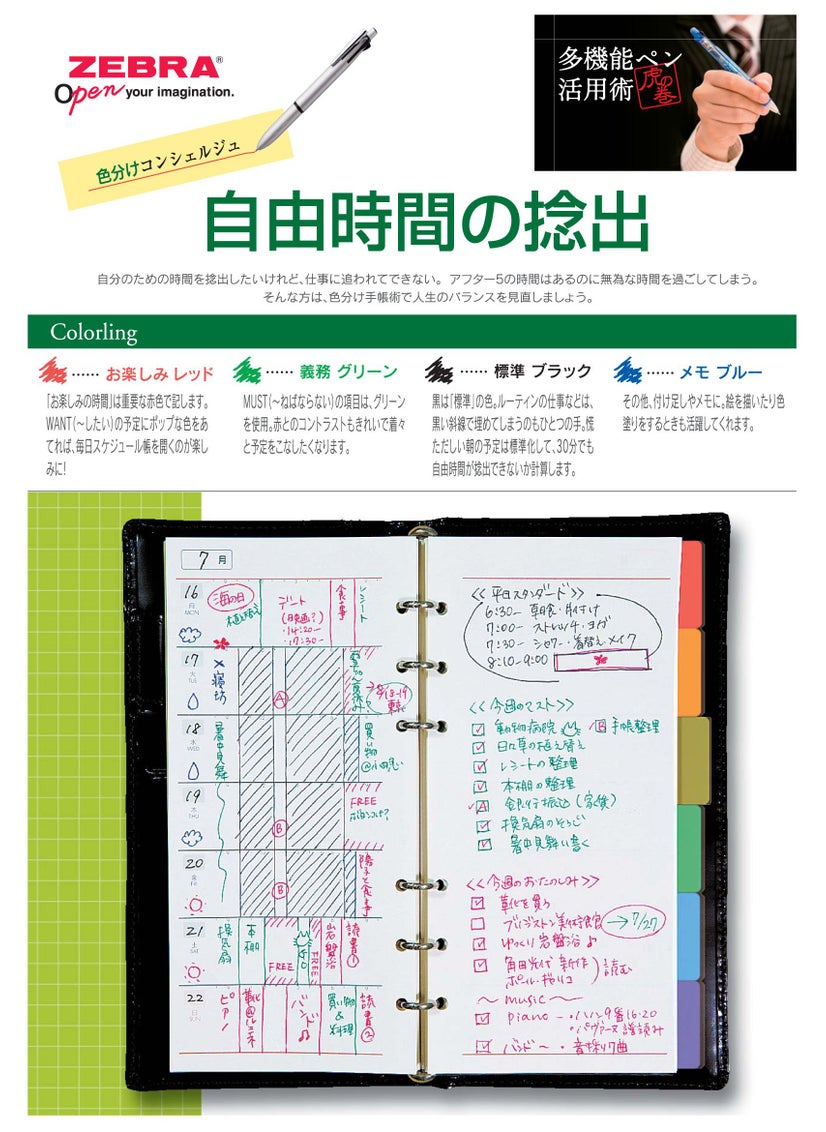 ZEBRA®
Open your imagination.
多機能ペン
活用術 虎の巻
色分けコンシェルジュ
自由時間の捻出
自分のための時間を捻出したいけれど、仕事に追われてできない。アフター5の時間はあるのに無為な時間を過ごしてしまう。
そんな方は、色分け手帳術で人生のバランスを見直しましょう。
Colorling
…… お楽しみ レッド
「お楽しみの時間」は重要な赤色で記します。
WANT（～したい）の予定にポップな色をあ
てれば、毎日スケジュール帳を開くのが楽し
みに!
…… 義務 グリーン
MUST（～ねばならない）の項目は、グリーン
を使用。赤とのコントラストもきれいで着々
と予定をこなしたくなります。
…… 標準 ブラック
黒は「標準」の色。ルーティンの仕事などは、
黒い斜線で埋めてしまうのもひとつの手。慌
ただしい朝の予定は標準化して、30分でも
自由時間が捻出できないか計算します。
…… メモ ブルー
その他、付け足しやメモに。絵を描いたり色
塗りをするときも活躍してくれます。
7 月
16
月
MON
海の日
植え替え
デート
(映画?)
・14:20-
・17:30-
食事
レシート
17
火
TUE
×寝坊
A
8/18-19
18
水
WED
暑中見舞
買い物
19
木
THU
B
FREE
20
金
FRI
B
陽子と食事
21
土
SAT
換気扇
本棚
FREE
FREE
岩盤浴
読書①
22
日
SUN
ピアノ
バンド♫
買い物
&
料理
読書②
<<平日スタンダード>>
6:30- 朝食・片付け
7:00- ストレッチ・ヨガ
7:30- シャワー・着替え・メイク
8:10-9:00
<<今週のマスト>>
動物病院 B 手帳整理
日々草の植え替え
レシートの整理
本棚の整理
A 銀行振込(家族)
換気扇のそうじ
暑中見舞い書く
<<今週のおたのしみ>>
靴を買う
ブリヂストン美術館 →7/27
ゆっくり岩盤浴♪
角田光代 新作
読む
～music～
piano - ・ハノン9番16-20
・パヴァーヌ譜読み
バンド～ ・音採り7曲